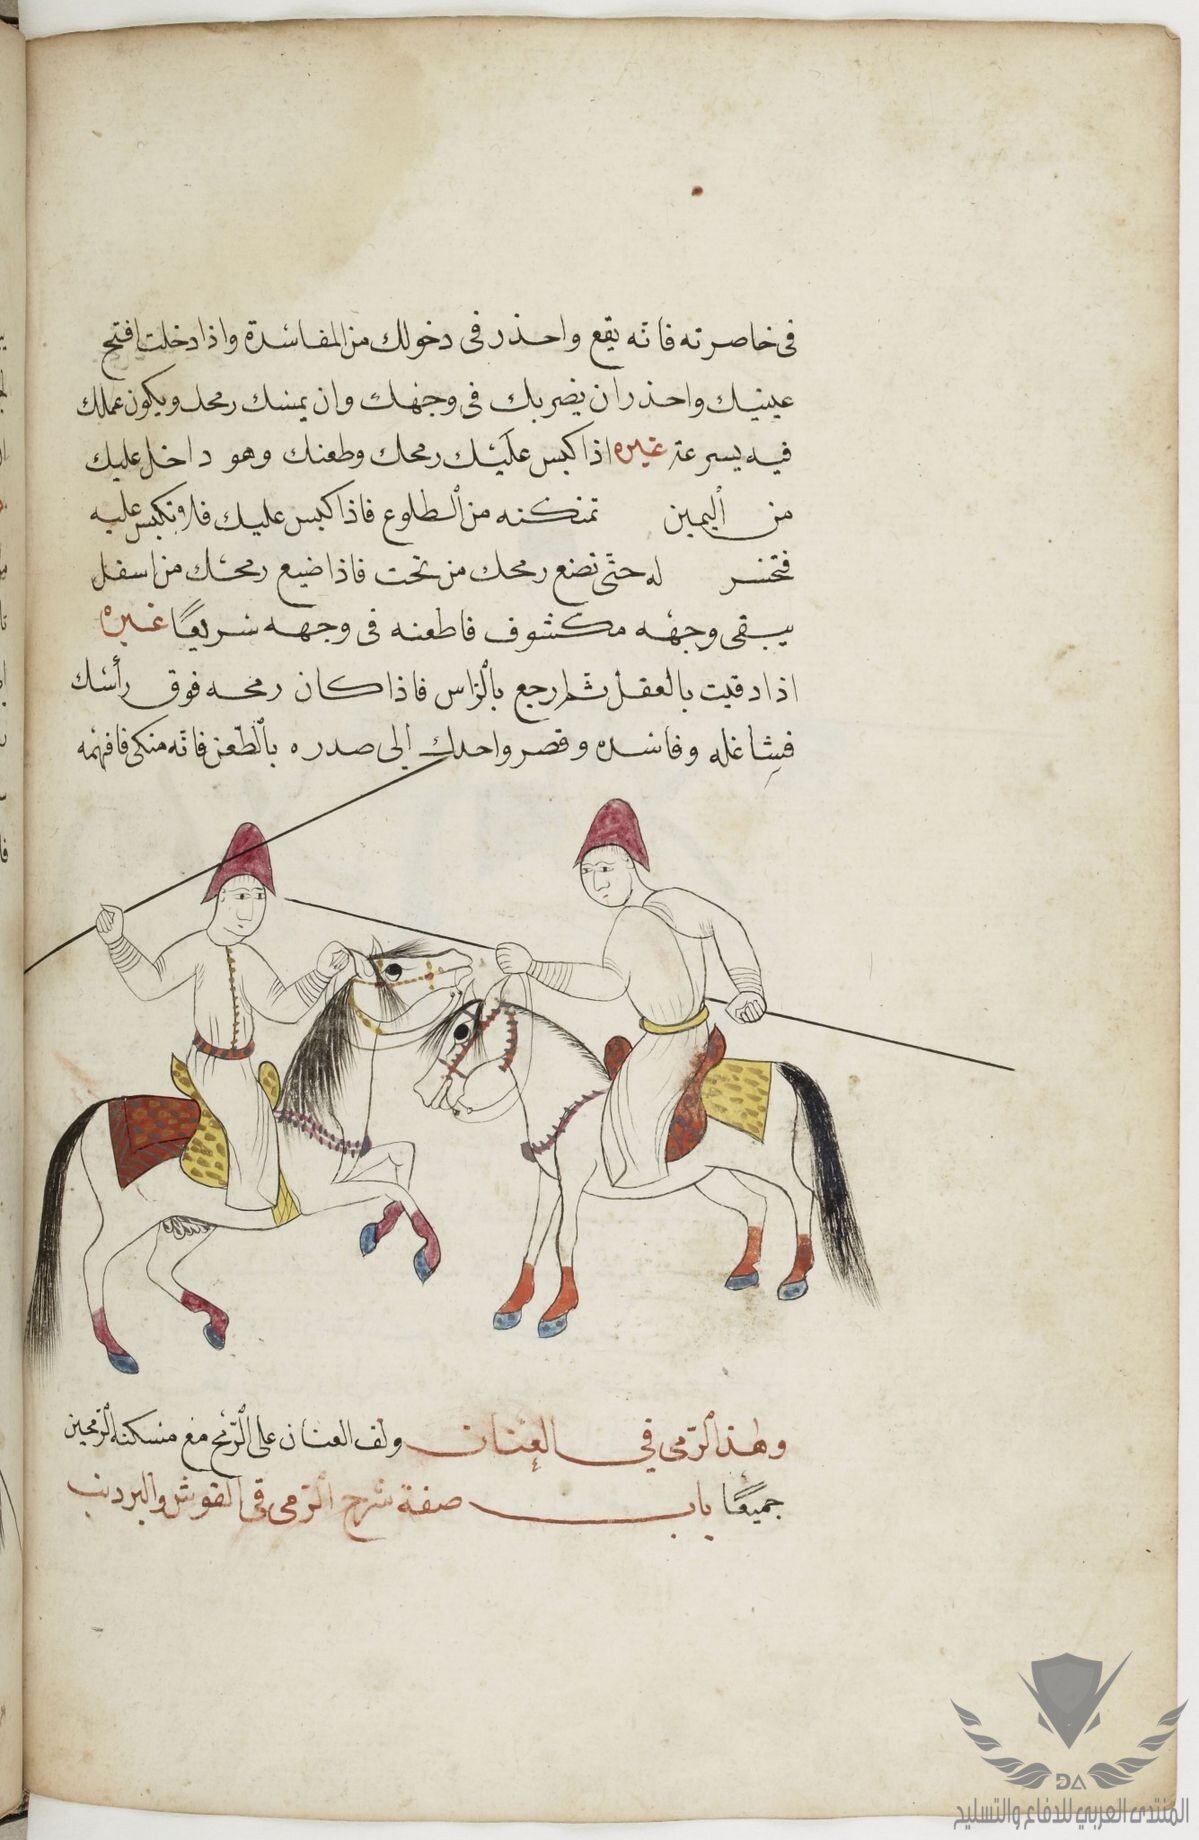 فى خاصرته فانه يقع واحذر فى دخولك من المفاسدة واذا دخلت افتح
عينيك واحذر ان يضربك فى وجهك وان يمسك رمحك ويكون عملك
فيه بسرعة غيره اذا كبس عليك رمحك وطعنك وهو داخل عليك
من اليمين تمكنه من الطلوع فاذا كبس عليك فلا تكبس عليه
له حتى تضع رمحك من تحت فاذا ضيع رمحك من اسفل
يبقى وجهه مكشوف فاطعنه فى وجهه سريعًا غيره
اذا دقيت بالعقل ثم ارجع بالراس فاذا كان رمحه فوق رأسك
فشاغله وفاسده وقصر واحدك الى صدره بالطعن فانه منكى فافهمه
وهذ الرمى في العنان ولف العنان على الرمح مع مسكته الرمحين
جميعًا باب صفة شرح الرمى فى القوس
DA
المنتدى العربي للدفاع والتسليح